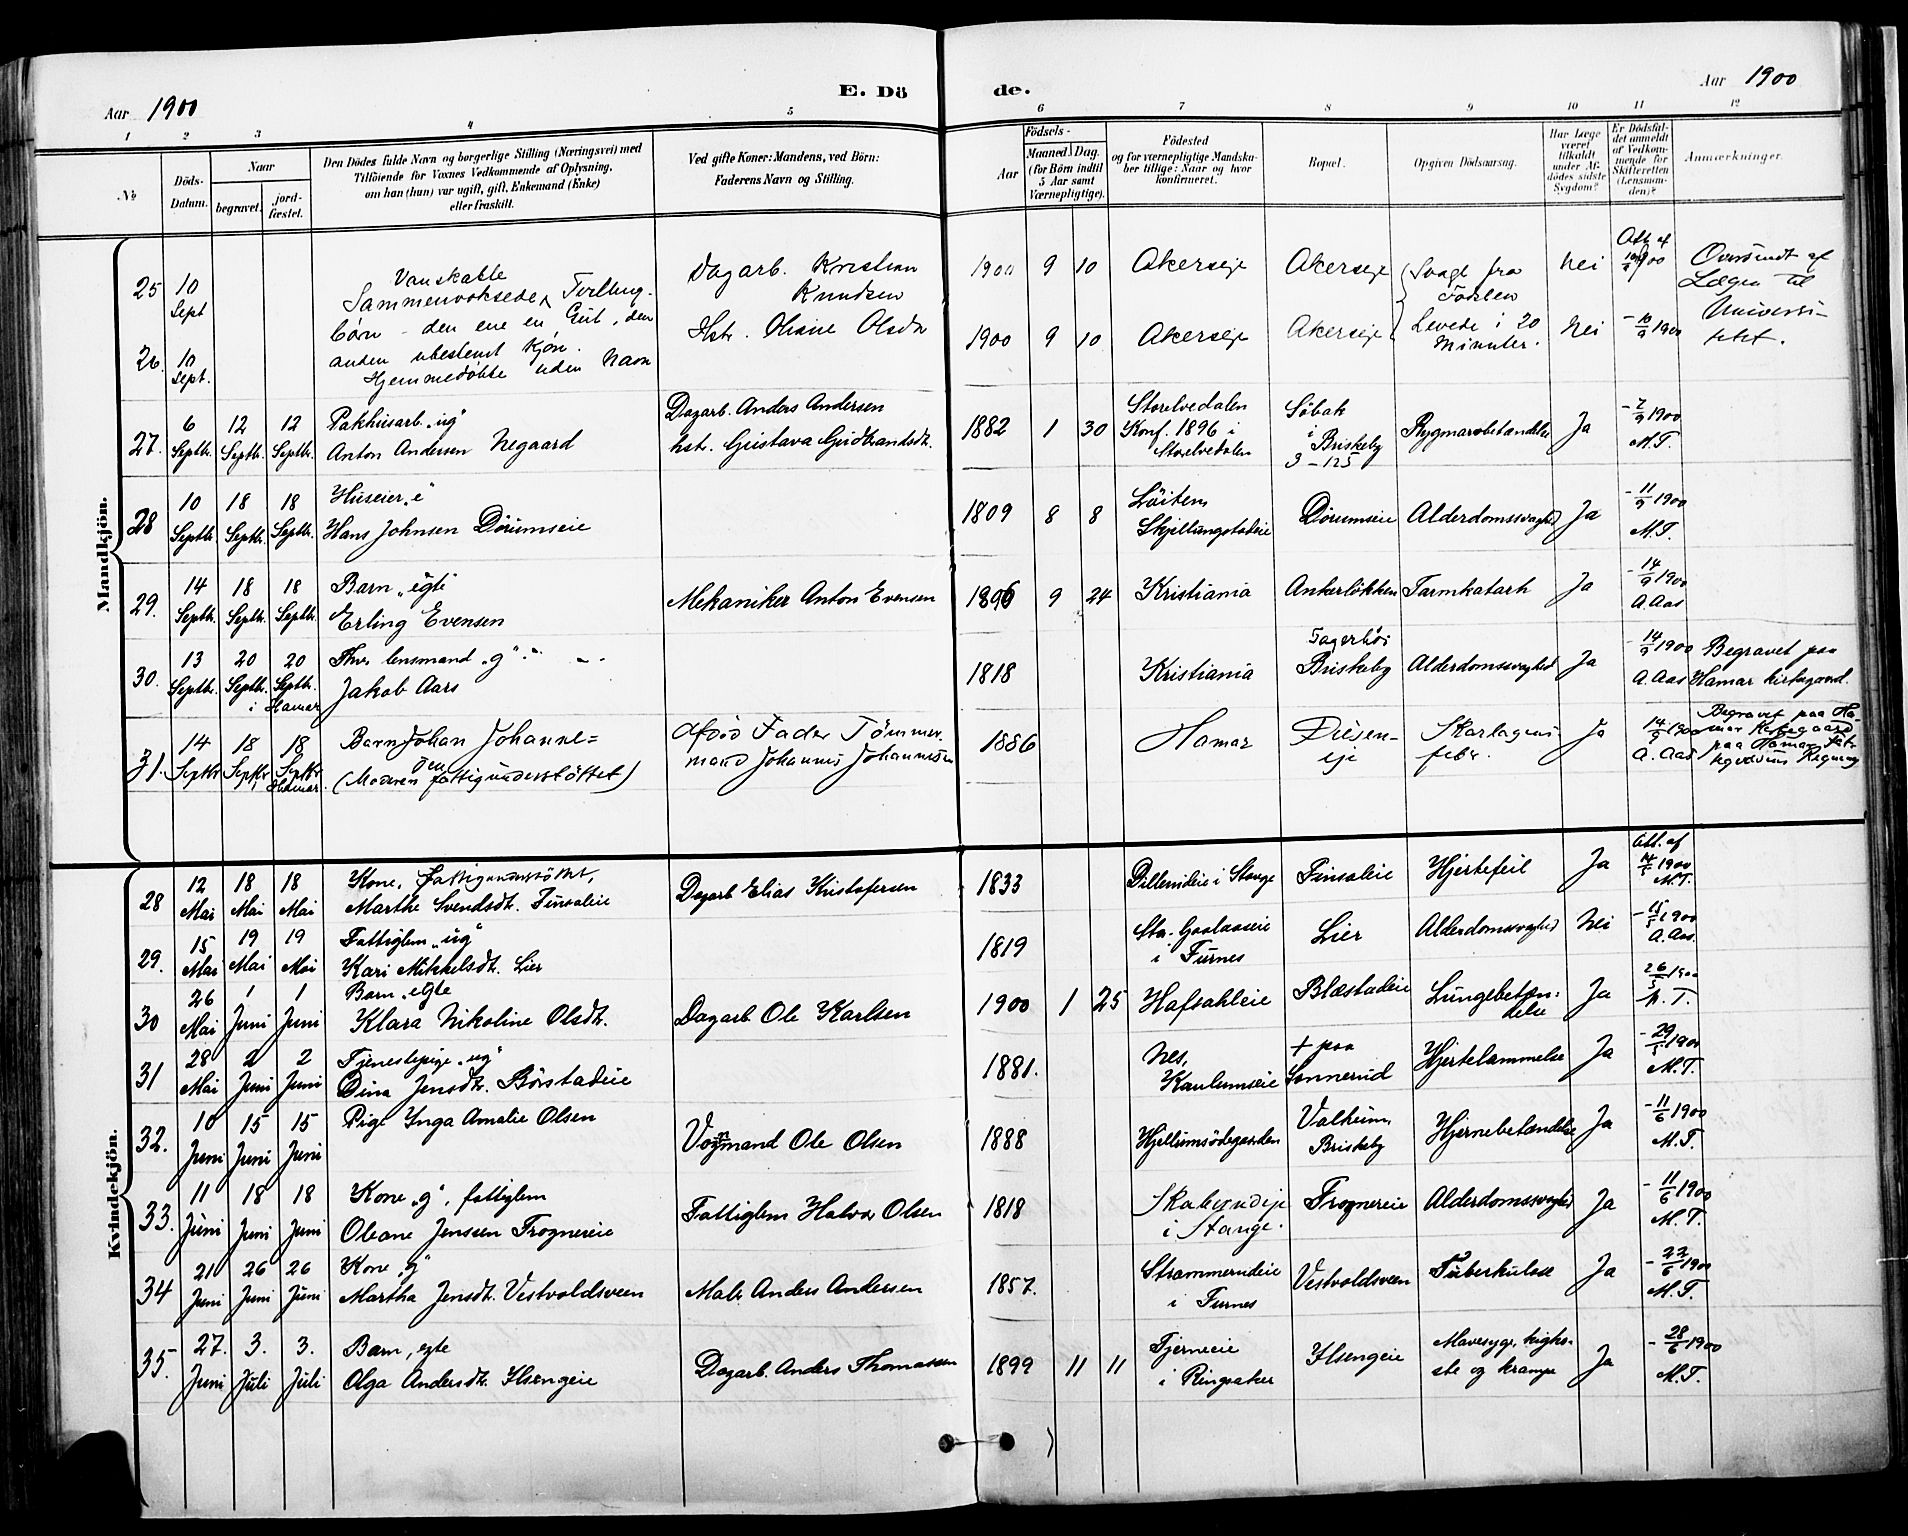 Aar 1900
E. Dö
de.
Aar 1900
1 2 3 4 5 6 7 8 9 10 11 12
No
Döds-
Datum.
Naar
begravet.
jord-
fæstet.
Den Dödes fulde Navn og borgerlige Stilling (Næringsvei) med
Tilföiende for Voxnes Vedkommende af Oplysning,
om han (hun) var ugift, gift, Enkemand (Enke)
eller fraskilt.
Ved gifte Koner: Mandens, ved Börn:
Faderens Navn og Stilling.
Födsels-
Aar
Maaned. Dag.
(for Börn indtil
5 Aar samt
Værnepligtige).
Födested
og for værnepligtige Mandska-
ber tillige: Naar og hvor
konfirmeret.
Bopæl.
Opgiven Dödsaarsag.
Har Læge
været
tilkaldt
under Af-
dödes sidste
Sygdom?
Er Dödsfal-
det anmeldt
af Vedkom-
mende for
Skifteretten
(Lensman-
den)?
Anmærkninger.
Mandkjön.
25 10
Sept
26. 10
Sept.
Vanskabte
Sammenvoksede Tvilling-
börn - den ene en Gut, den
anden ubestemt Kjön.
Hjemmedöbte uden Navn
Dagarb. Kristian
Knudsen
Hstr. Oliane Olsdr
1900 9 10 Akerseje Akerseje Svage fra
Födslen
Nei
Att. af
10/9 1900
Oversendt af
Lægen til
Universi-
tetet.
1900 9 10 Akerseje Akerseje Levede i 20
Minuter.
Nei - 10/9 1900
27. 6 12 12
Septbr. Septbr. Septbr.
Pakhusarb. "ug"
Anton Andersen Negaard
Dagarb. Anders Andersen
hstr. Gustava Gudbrandsdtr.
1882 1 30
Storelvedalen
Konf. 1896 i
Storelvedalen
Söbak
i
Briskeby
3 - 125
Rygmarvsbetændelse Ja
- 7/9 1900
M.T.
28 10 18 18
Septbr. Septbr. Septbr.
Huseier "e"
Hans Johnsen Dörumseie
1809 8 8
Löiten,
Skjellungstadeie
Dörumseie Alderdomssvaghed Ja
- 11/9 1900
M.T.
29. 14 18 18
Septbr. Septbr. Septbr.
Barn "egte"
Erling Evensen
Mekaniker Anton Evensen
1896 9 24 Kristiania Ankerlökken Tarmkatarh Ja
- 14/9 1900
A. Aas
30. 13 20 20
Septbr. Septbr. Septbr.
i Hamar
Fhv. lensmand "g"
Jakob Aars
1818 Kristiania
Fagerhöi
Briskeby
Alderdomssvaghed Ja
- 14/9 1900
A. Aas
Begravet paa
Hamar kirkegaard.
31. 14 18 18
Septbr Septbr Septbr
Hamar.
Barn Johan Johanne=
sen
(Moderen fattigunderstöttet)
Afdöd Fader Tömmer-
mand Johannes Johannesen
1886 Hamar
Disen-
eje
Skarlagens
feber.
Ja
14/9 1900
A. Aas
Begravet paa Ha-
mar Kirkegaard
paa Hamar Fat-
tigvæsens Regning
Kvindekjön.
28 12 18 18
Mai Mai Mai
Kone, fattigunderstöttet,
Marthe Svendsdt. Finsaleie
Dagarb. Elias Kristofersen
1833 Dillerudeie i Stange Finsaleie Hjertefeil Ja
Att. af
14/5 1900
M.T.
29. 15 19 19
Mai Mai Mai
Fattiglem "ug"
Kari Mikkelsdt. Lier
1819
i Furnes
Lier Alderdomssvaghed Nei
- 15/5 1900
A. Aas.
30 26 1 1
Mai Juni Juni
Barn "egte
Klara Nikoline Olsdt.
Dagarb. Ole Karlsen
1900 1 25 Hafsahleie Blæstadeie
Lungebetæn-
delse
Ja
26/5 1900
M. T.
31 28 2 2
Mai Juni Juni
Tjenestepige "ug"
Dina Jensdt. Börstadeie
1881.
Nes,
Kaulumseie
+ paa
Sonnerud
Hjertelammelse Ja
- 29/5 1900
M.T.
32. 10 15 15
Juni Juni Juni
Pige Ynga Amalie Olsen
Vognmand Ole Olsen
1888 Hjellumsödegaarden
Valheim,
Briskeby
Hjernebetændelse Ja
- 11/6 1900
M.T.
33. 11 18 18
Juni Juni Juni
Kone "g", fattiglem
Oleane Jenssen Trognereie
Fattiglem Halvor Olsen
1818
i Stange.
Trognereie Alderdomssvaghed Ja
- 11/6 1900
M.T.
34 21 26 26
Juni Juni Juni
Kone "g"
Martha Jensdt. Vestvoldsveen
Maler Anders Andersen
1857.
Strammerudeie
i Furnes
Vestvoldsveen Tuberkulose Ja
- 22/6 1900
M.T.
35. 27. 3. 3.
Juni Juli Juli
Barn, egte
Olga Andersdt. Ilsengeie
Dagarb. Anders Thomassen
1899 11 11
Tjerneeie
i Ringsaker
Ilsengeie
Mavesyge, kigho-
ste og krampe
Ja
- 28/6 1900
M.T.